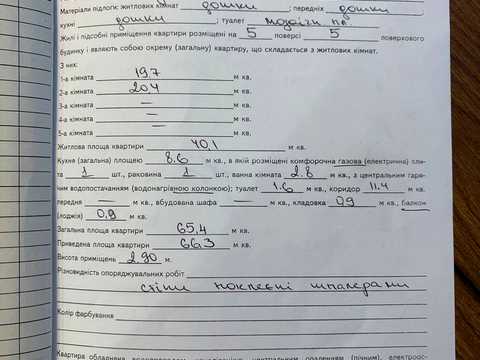 Матеріали підлоги: житлових кімнат дошки; передніх дошки;
кухні дошки; туалет
Жилі і підсобні приміщення квартири розміщені на 5 поверсі 5 поверхового
будинку і являють собою окрему (загальну) квартиру, що складається з житлових кімнат.
З них:
1-а кімната 19,7 м кв.
2-а кімната 20,4 м кв.
3-а кімната — м кв.
4-а кімната — м кв.
5-а кімната — м кв.
Житлова площа квартири 40,1 м кв.
Кухня (загальна) площею 8.6 м кв., в якій розміщені комфорочна газова (електрична) пли-
та 1 шт., раковина 1 шт., ванна кімната 2.8 м кв., з центральним гаря-
чим водопостачанням (водонагрівною колонкою); туалет 1.6 м кв., коридор 11.4 м кв.
передня — м кв., вбудована шафа — м кв., кладовка 0,9 м кв., балкон
(лоджія) 0,9 м кв.
Загальна площа квартири 65,4 м кв.
Приведена площа квартири 66,3 м кв.
Висота приміщень 2.90 м.
Різновидність опоряджувальних робіт
стіни поклеєні шпалерами
Колір фарбування